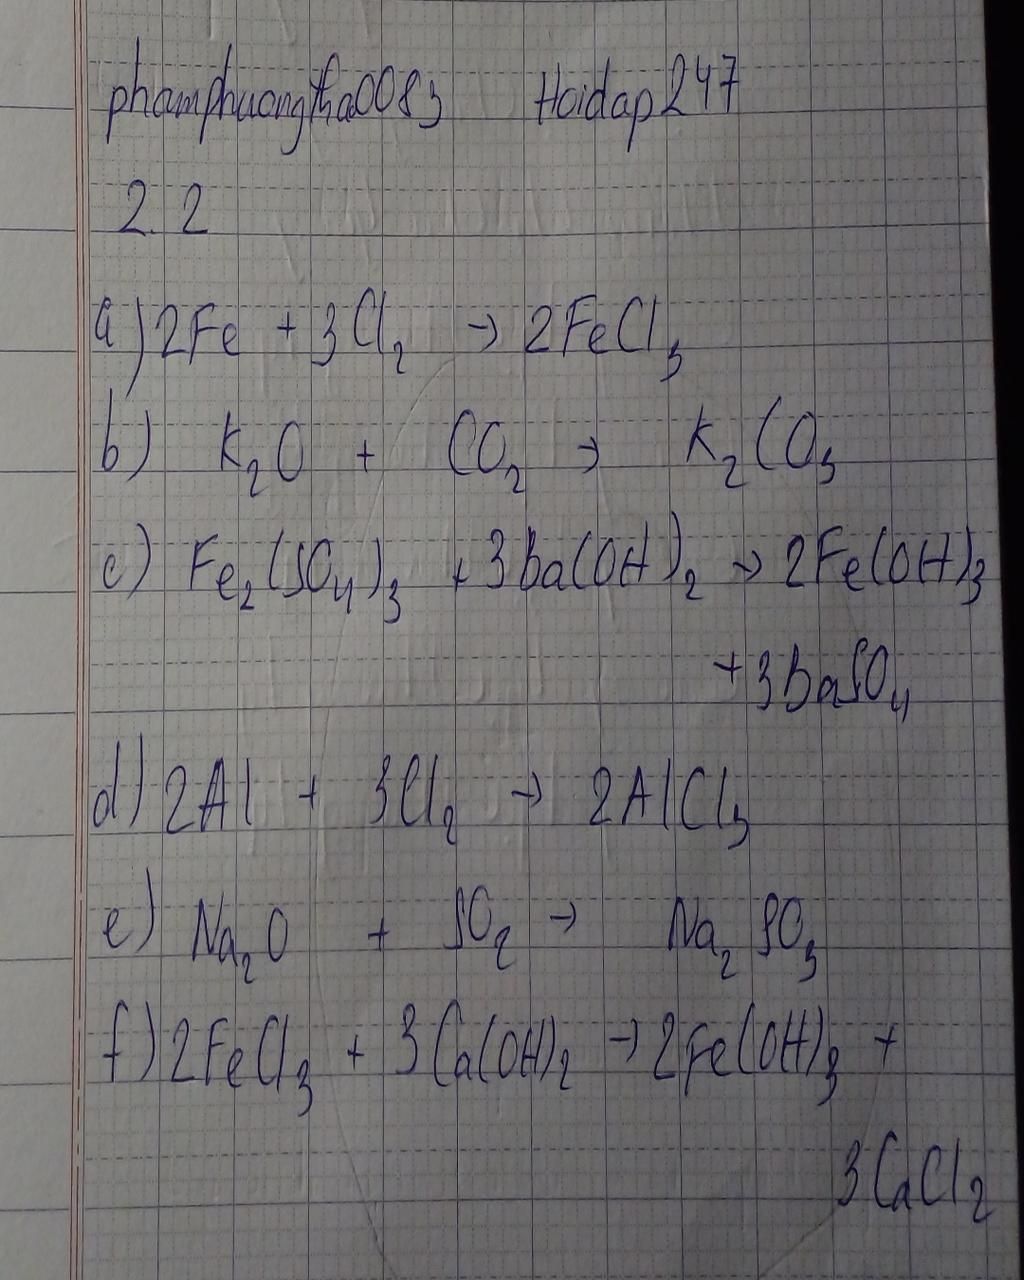 phamphuongtha0083 Hoidap247
2.2
a) 2Fe + 3Cl₂ → 2FeCl₃
b) K₂O + CO₂ → K₂CO₃
c) Fe₂(SO₄)₃ + 3Ba(OH)₂ → 2Fe(OH)₃
+ 3BaSO₄
d) 2Al + 3Cl₂ → 2AlCl₃
e) Na₂O + SO₂ → Na₂SO₃
f) 2FeCl₃ + 3Ca(OH)₂ → 2Fe(OH)₃ +
3CaCl₂